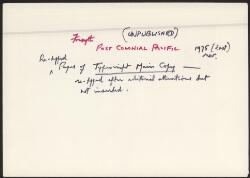 (UNPUBLISHED)
Forsyth
POST COLONIAL PACIFIC 1975 (last)
Re-typed
Pages of Typewright Main Copy —
re-typed after editorial alterations but
not inserted.